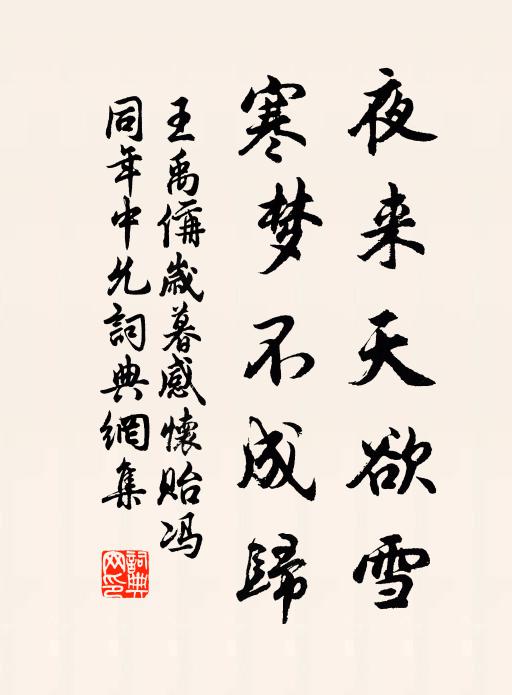 夜来天欲雪
寒梦不成歸
王禹偁歲暮感懷貽冯
同年中允詞典網集
詞典网印